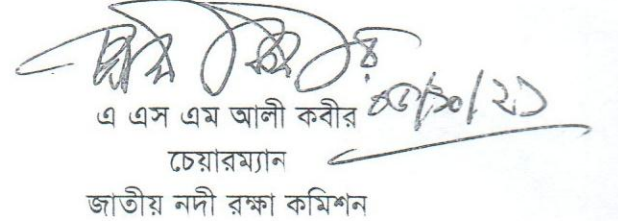 এ এস এম আলী কবীর
চেয়ারম্যান
জাতীয় নদী রক্ষা কমিশন